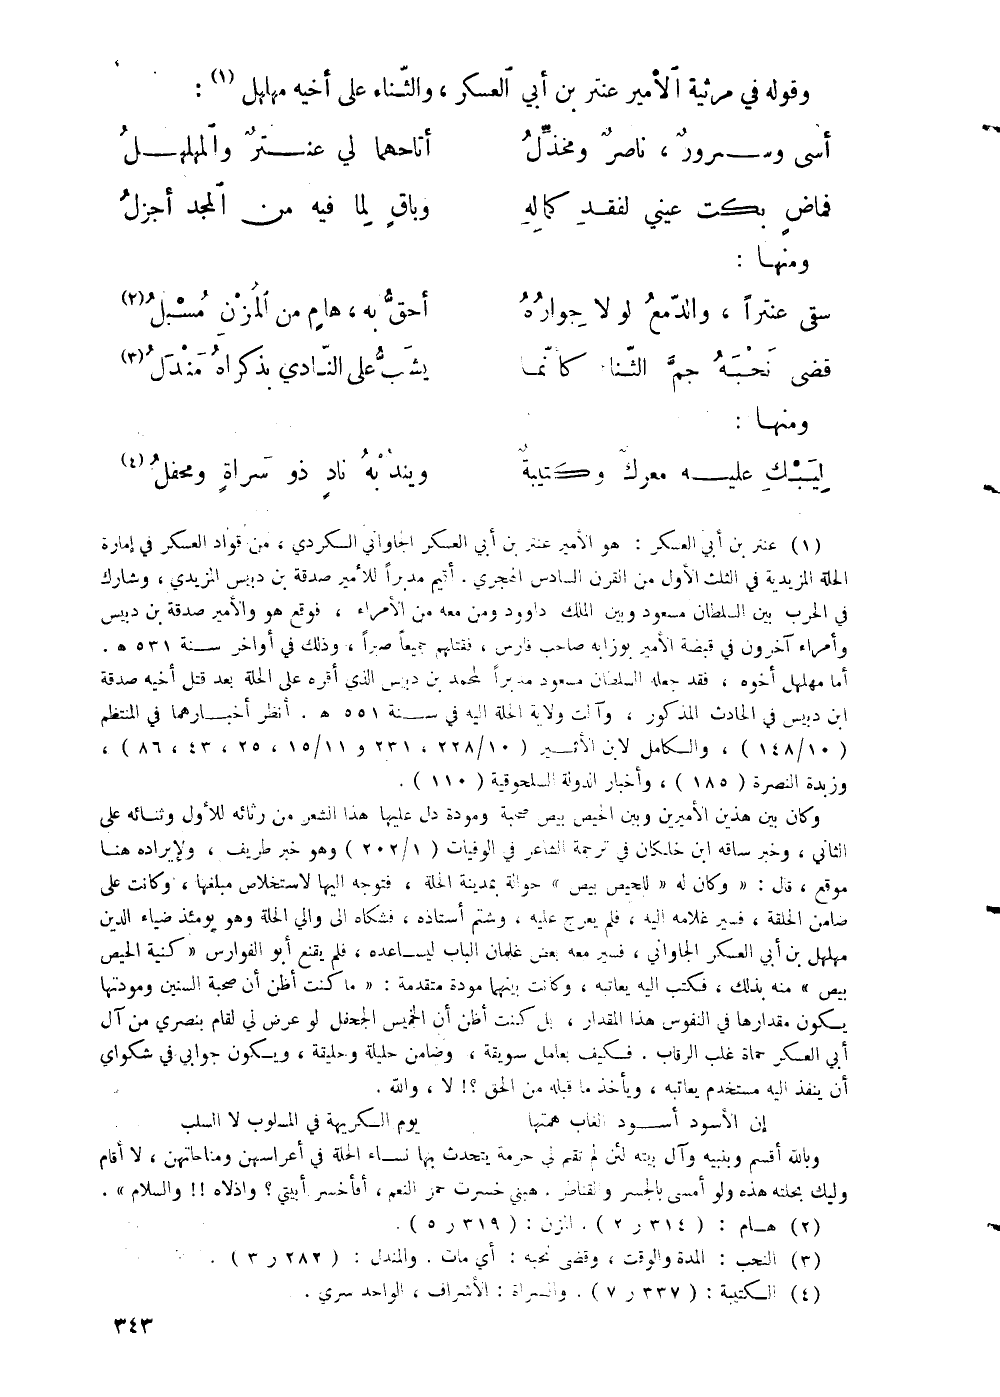 وقوله في مرثية ٱلأمير عنتر بن أبي ٱلعسكر ، والثّناء على أخيه مهلهل (١) :
أسى وسرورٌ ، ناصرٌ ومخذّلُ أتاحهما لي عنترٌ وٱلمهلهلُ
فماضٍ بكت عيني لفقدِ كمالِهِ وباقٍ لِما فيه من ٱلمجد أجزلُ
ومنها :
سقى عنتراً ، والدّمعُ لولا جِوارُهُ أحقُّ به ، هامٍ من ٱلمُزْنِ مُسْبِلُ (٢)
قضى نَحْبَهُ جمَّ الثّناء كأنّما يشَبُّ على النّادي بذكراهُ مَنْدَلُ (٣)
ومنها :
لِيَبْكِ عليه معركٌ وكتيبةٌ ويندُبْهُ نادٍ ذو سَراةٍ ومحفلُ (٤)
(١) عنتر بن أبي العسكر : هو الأمير عنتر بن أبي العسكر الجاواني الكردي ، من قواد العسكر في إمارة
الحلة المزيدية في الثلث الأول من القرن السادس الهجري . أقيم مدبراً للأمير صدقة بن دبيس المزيدي ، وشارك
في الحرب بين السلطان مسعود وبين الملك داوود ومن معه من الأمراء ، فوقع هو والأمير صدقة بن دبيس
وأمراء آخرون في قبضة الأمير بوزابه صاحب فارس ، فقتلهم جميعاً صبراً ، وذلك في أواخر سنة ٥٣١ هـ .
أما مهلهل أخوه ، فقد جعله السلطان مسعود مدبراً لمحمد بن دبيس الذي أقره على الحلة بعد قتل أخيه صدقة
ابن دبيس في الحادث المذكور ، وآلت ولاية الحلة اليه في سنة ٥٥١ هـ . أنظر أخبارهما في المنتظم
( ١٤٨/١٠ ) ، والكامل لابن الأثير ( ٢٢٨/١٠ ، ٢٣١ و ١٥/١١ ، ٢٥ ، ٤٣ ، ٨٦ ) ،
وزبدة النصرة ( ١٨٥ ) ، وأخبار الدولة السلجوقية ( ١١٠ ) .
وكان بين هذين الأميرين وبين الحيص بيص صحبة ومودة دل عليها هذا الشعر من رثائه للأول وثنائه على
الثاني ، وخبر ساقه ابن خلكان في ترجمة الشاعر في الوفيات ( ٢٠٢/١ ) وهو خبر طريف ، ولإيراده هنا
موقع ، قال : « وكان له « للحيص بيص » حوالة بمدينة الحلة ، فتوجه اليها لاستخلاص مبلغها ، وكانت على
ضامن الحلقة ، فسير غلامه اليه ، فلم يعرج عليه ، وشتم أستاذه ، فشكاه الى والي الحلة وهو يومئذ ضياء الدين
مهلهل بن أبي العسكر الجاواني ، فسير معه بعض غلمان الباب ليساعده ، فلم يقنع أبو الفوارس « كنية الحيص
بيص » منه بذلك ، فكتب اليه يعاتبه ، وكانت بينهما مودة متقدمة : « ما كنت أظن أن صحبة السنين ومودتها
يكون مقدارها في النفوس هذا المقدار ، بل كنت أظن أن الخميس الجحفل لو عرض لي لقام بنصري من آل
أبي العسكر حماة غلب الرقاب . فكيف بعامل سويقة ، وضامن حليلة وحليقة ، ويكون جوابي في شكواي
أن ينفذ اليه مستخدم يعاتبه ، ويأخذ ما قبله من الحق ؟! لا ، والله .
إن الأسود أسود الغاب همتها يوم الكريهة في المسلوب لا السلب
وبالله أقسم وبنبيه وآل بيته لئن لم تقم لي حرمة يتحدث بها نساء الحلة في أعراسهن ومناحاتهن ، لا أقام
وليك بحلته هذه ولو أمسى بالجسر والقناطر . هبني خسرت حمر النعم ، أفأخسر أبيتي ؟ واذلاه !! والسلام » .
(٢) هام : ( ٣١٤ ر ٢ ) . المزن : ( ٣١٩ ر ٥ ) .
(٣) النحب : المدة والوقت ، وقضى نحبه : أي مات . والمندل : ( ٢٨٢ ر ٣ ) .
(٤) الكتيبة : ( ٣٣٧ ر ٧ ) . والسراة : الأشراف ، الواحد سري .
٣٤٣